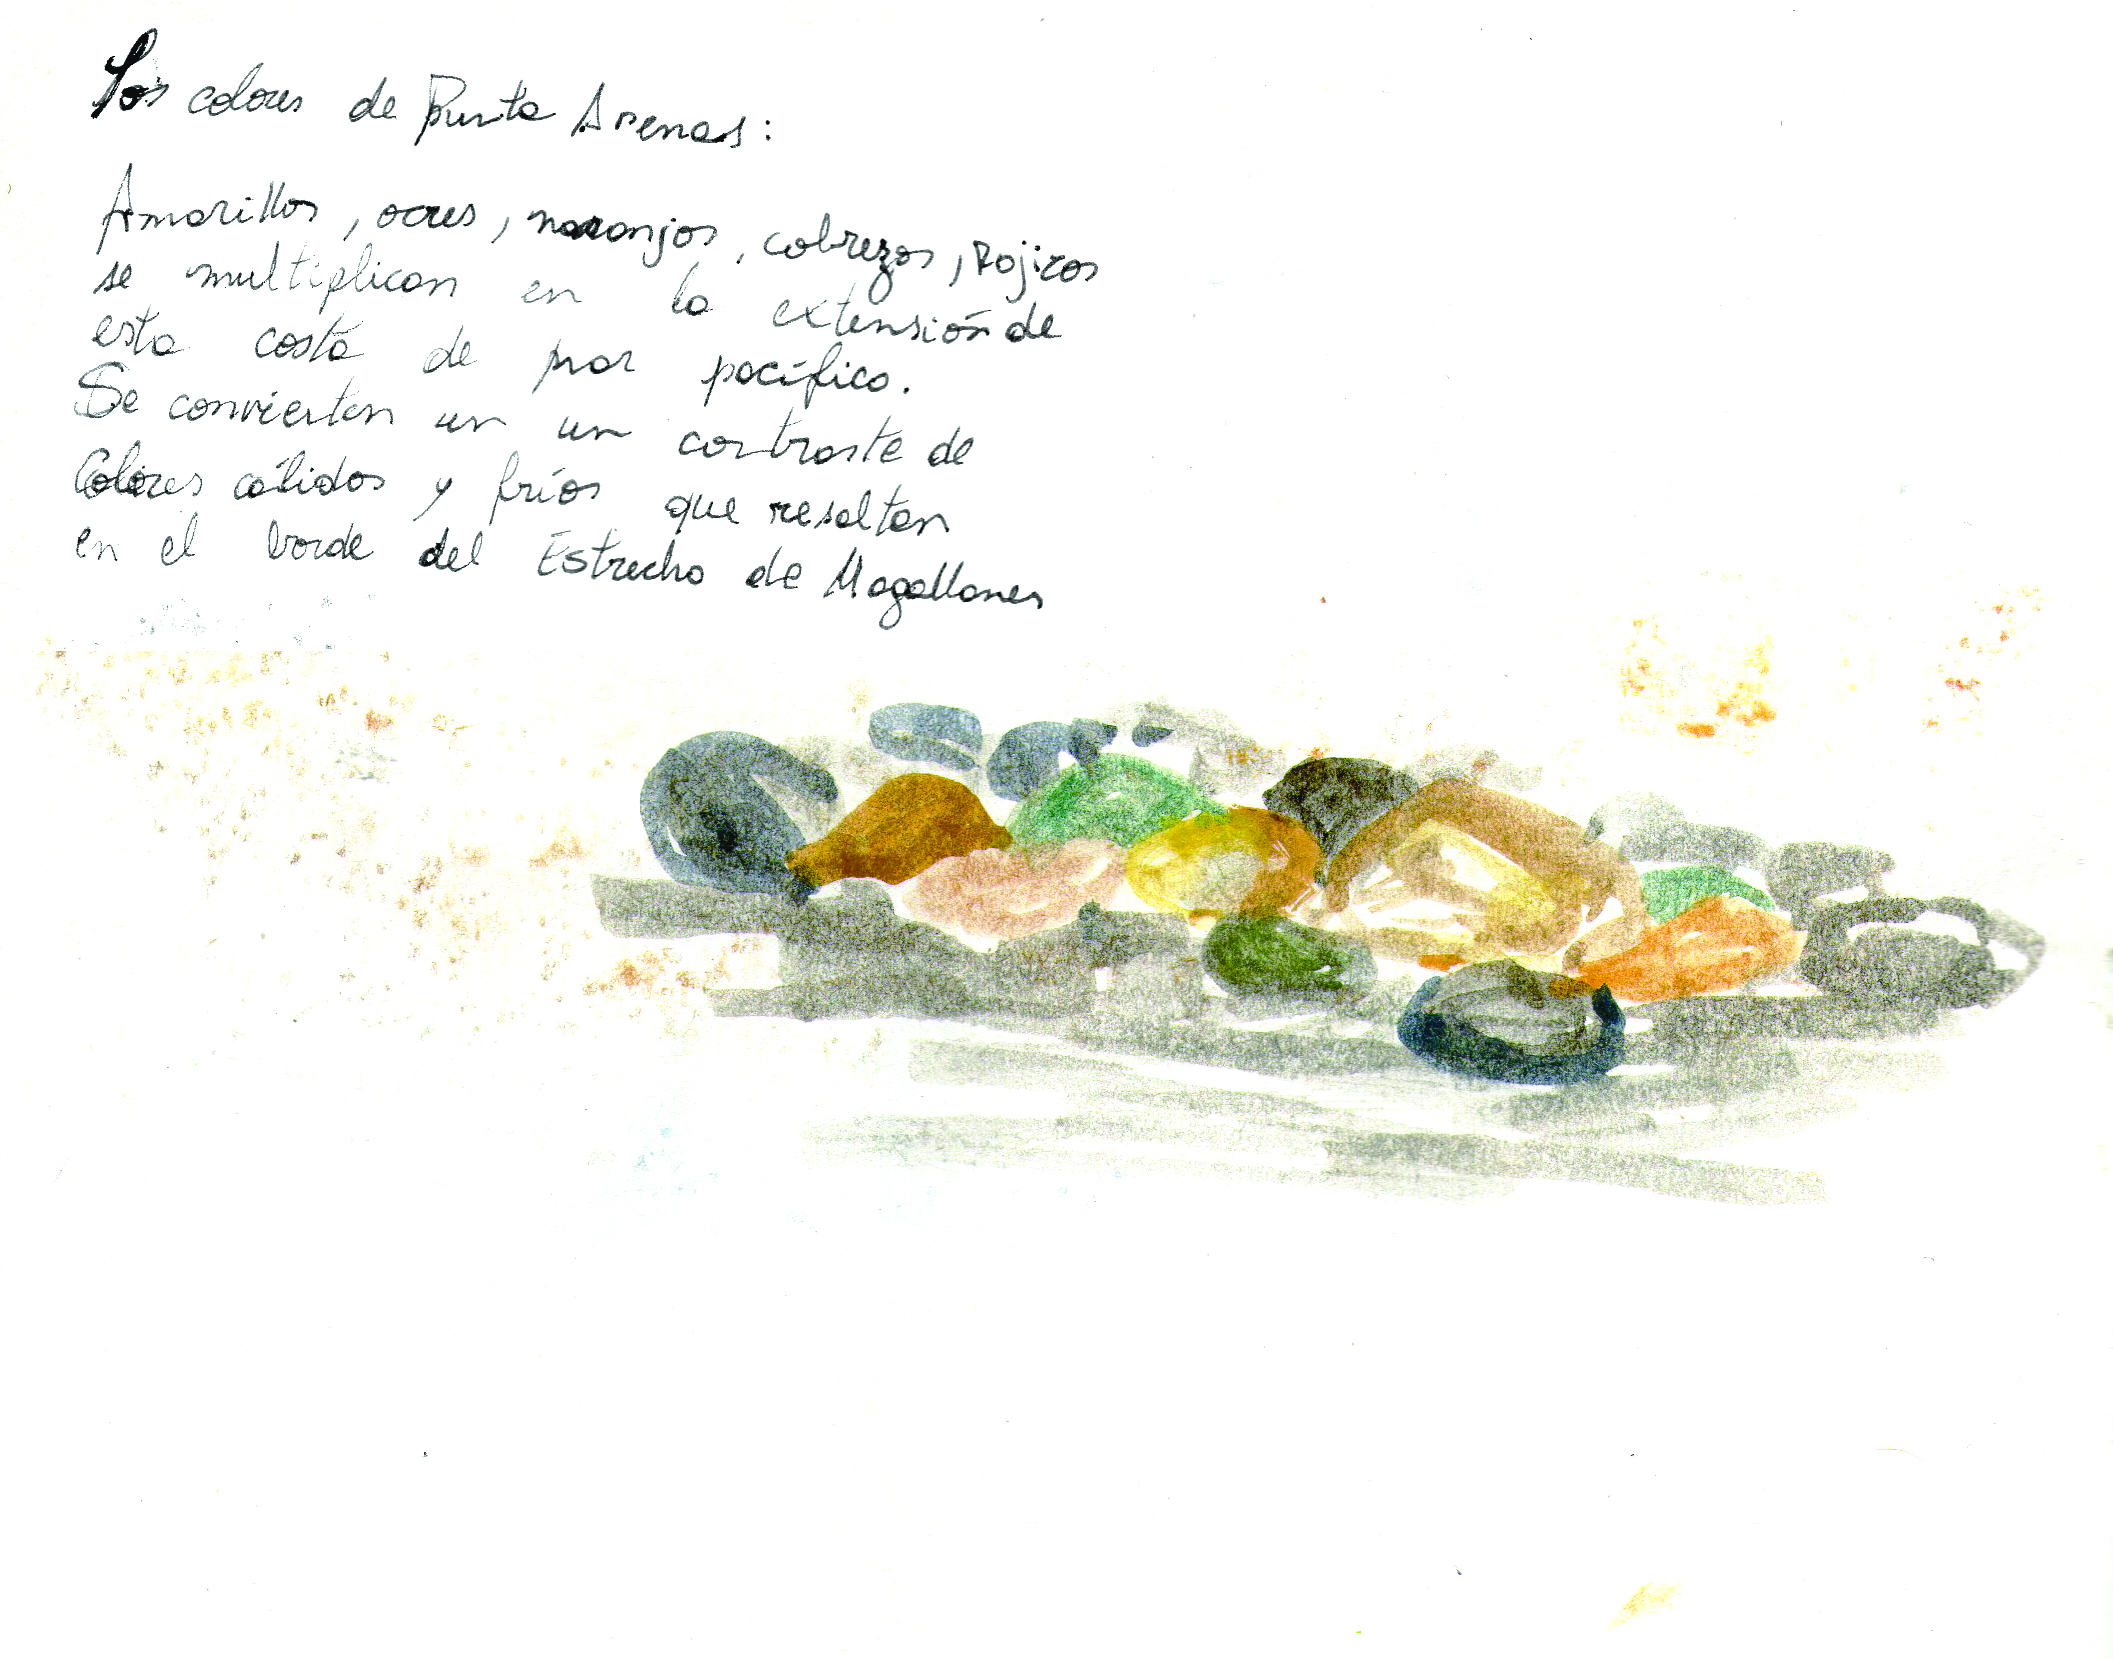 Los colores de Punta Arenas:
Amarillos, ocres, naranjos, cobrezos, Rojizos
se multiplican en la extensión de
esta costa de mar pacífico.
Se convierten un un contraste de
Colores cálidos y fríos que resaltan
en el borde del Estrecho de Magallanes